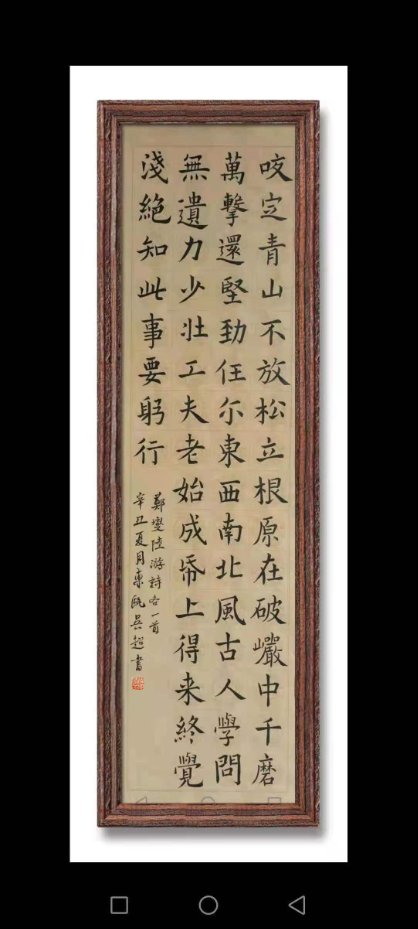 咬定青山不放松立根原在破巖中千磨
萬擊還堅勁任尓東西南北風古人學問
無遺力少壯工夫老始成帋上得来終覺
淺絶知此事要躬行
鄭燮陸游詩各一首
辛丑夏月東甌吳超書